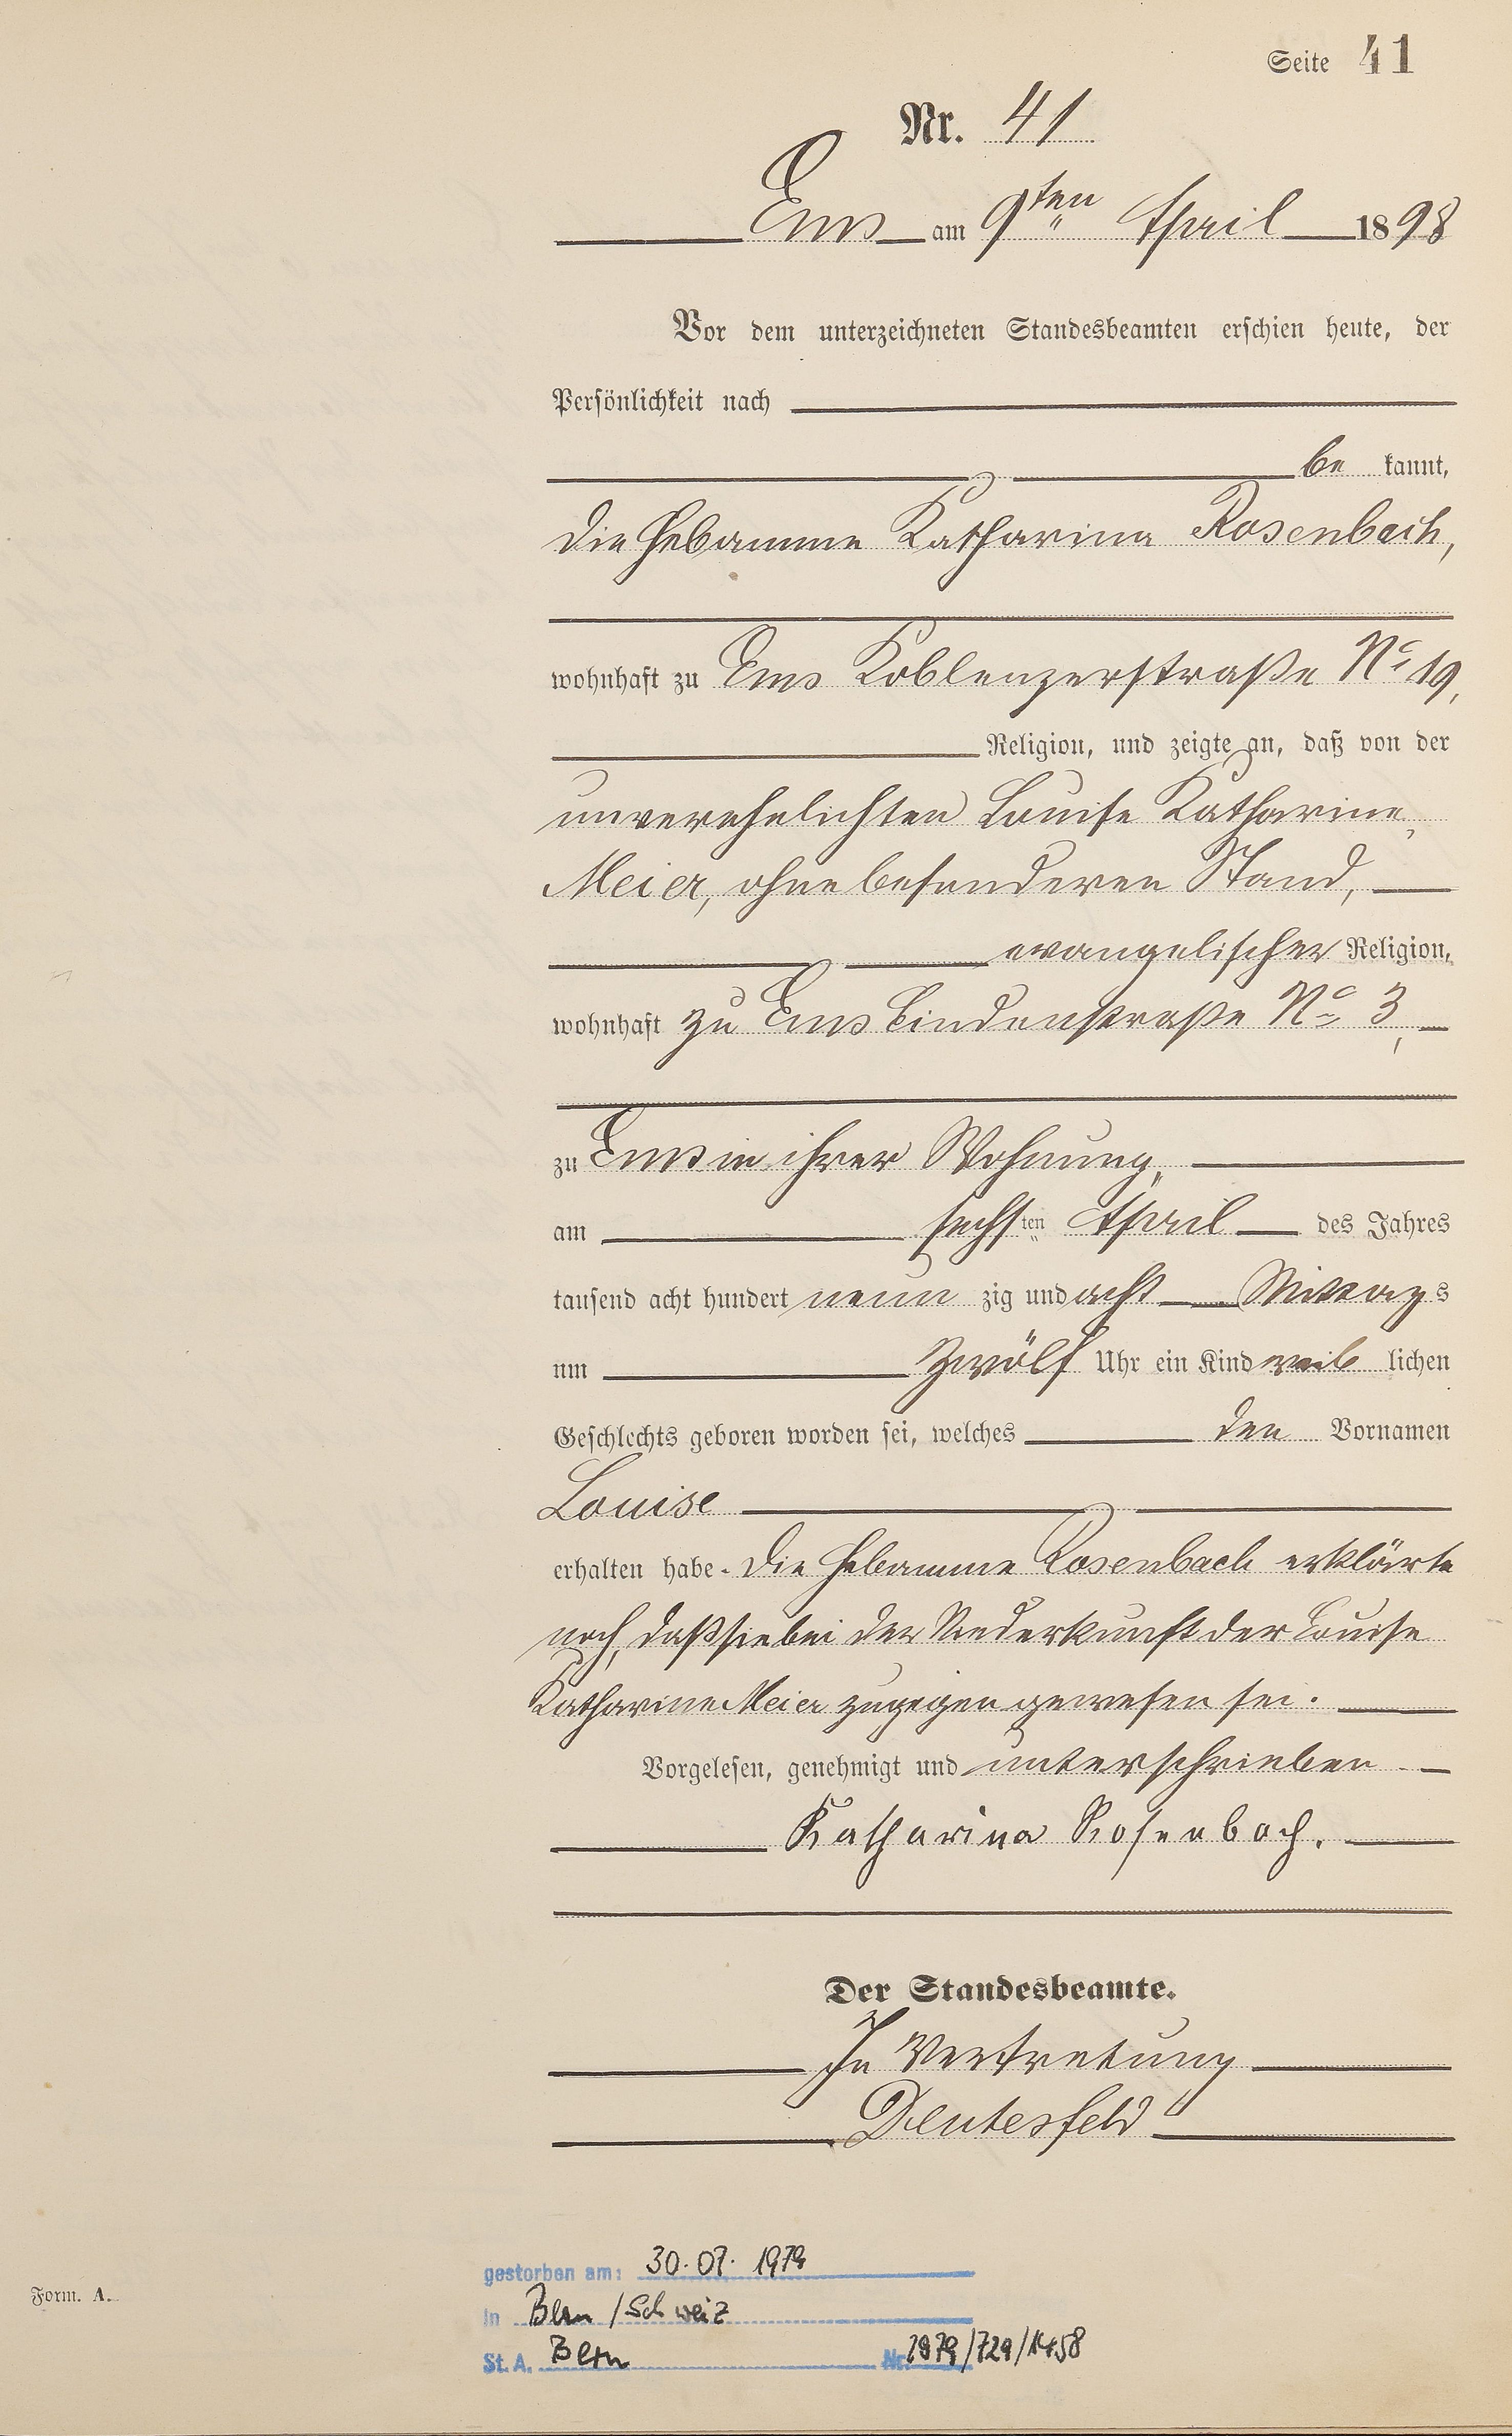 Seite 41
Nr. 41
Ems am 9ten April 1898
Vor dem unterzeichneten Standesbeamten erschien heute, der
Persönlichkeit nach
be kannt,
die Hebamme Katharina Rosenbach,
wohnhaft zu Ems Koblenzerstraße No 19,
Religion, und zeigte an, daß von der
unverehelichten Louise Katharine
Meier, ohne besonderen Stand,
evangelischer Religion,
wohnhaft zu Ems Lindenstraße No 3,
zu Ems in ihrer Wohnung,
am sechsten April des Jahres
tausend acht hundert neun zig und acht Mittags
um zwölf Uhr ein Kind weib lichen
Geschlechts geboren worden sei, welches den Vornamen
Louise
erhalten habe. Die Hebamme Rosenbach erklärte
noch, daß sie bei der Niederkunft der Louise
Katharine Meier zugegen gewesen sei.
Vorgelesen, genehmigt und unterschrieben
Katharina Rosenbach.
Der Standesbeamte.
In Vertretung
Deutesfeld
gestorben am: 30.07. 1979
in Bern / Schweiz
St. A. Bern Nr. 1979/729/1458
Form. A.